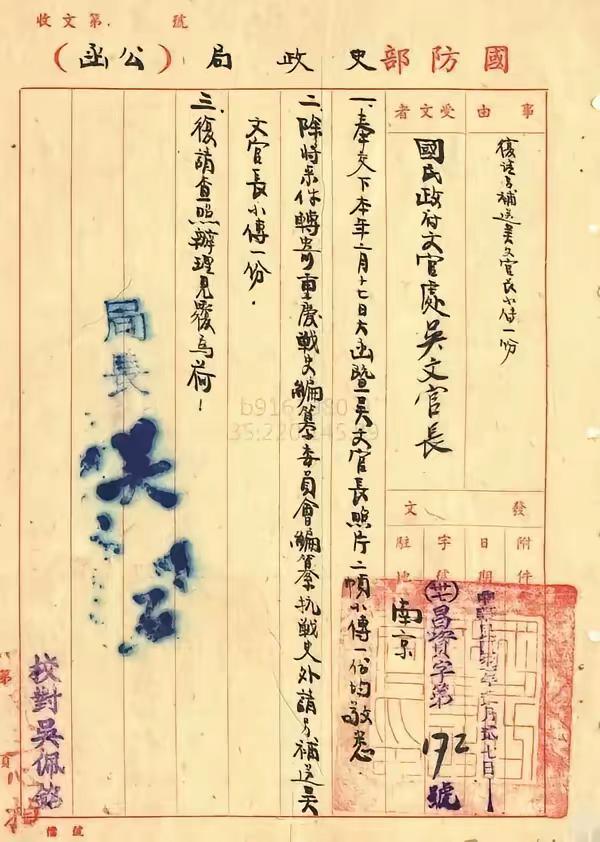 收文第 號
國防部史政局（公函）
事由
復請另補送吳文官長小傳一份
受文者
國民政府文官處吳文官長
發文
附件
日期
月貳七日
字號
昌資字第172號
駐地
南京
一、奉交下本年二月十七日大函暨吳文官長照片二幀小傳一份均敬悉
二、除將來件轉寄重慶戰史編纂委員會編纂抗戰史外請另補送吳
文官長小傳一份．
三、復請查照辦理見覆為荷！
局長 吳石
校對吳佩銘
第
頁
檔號